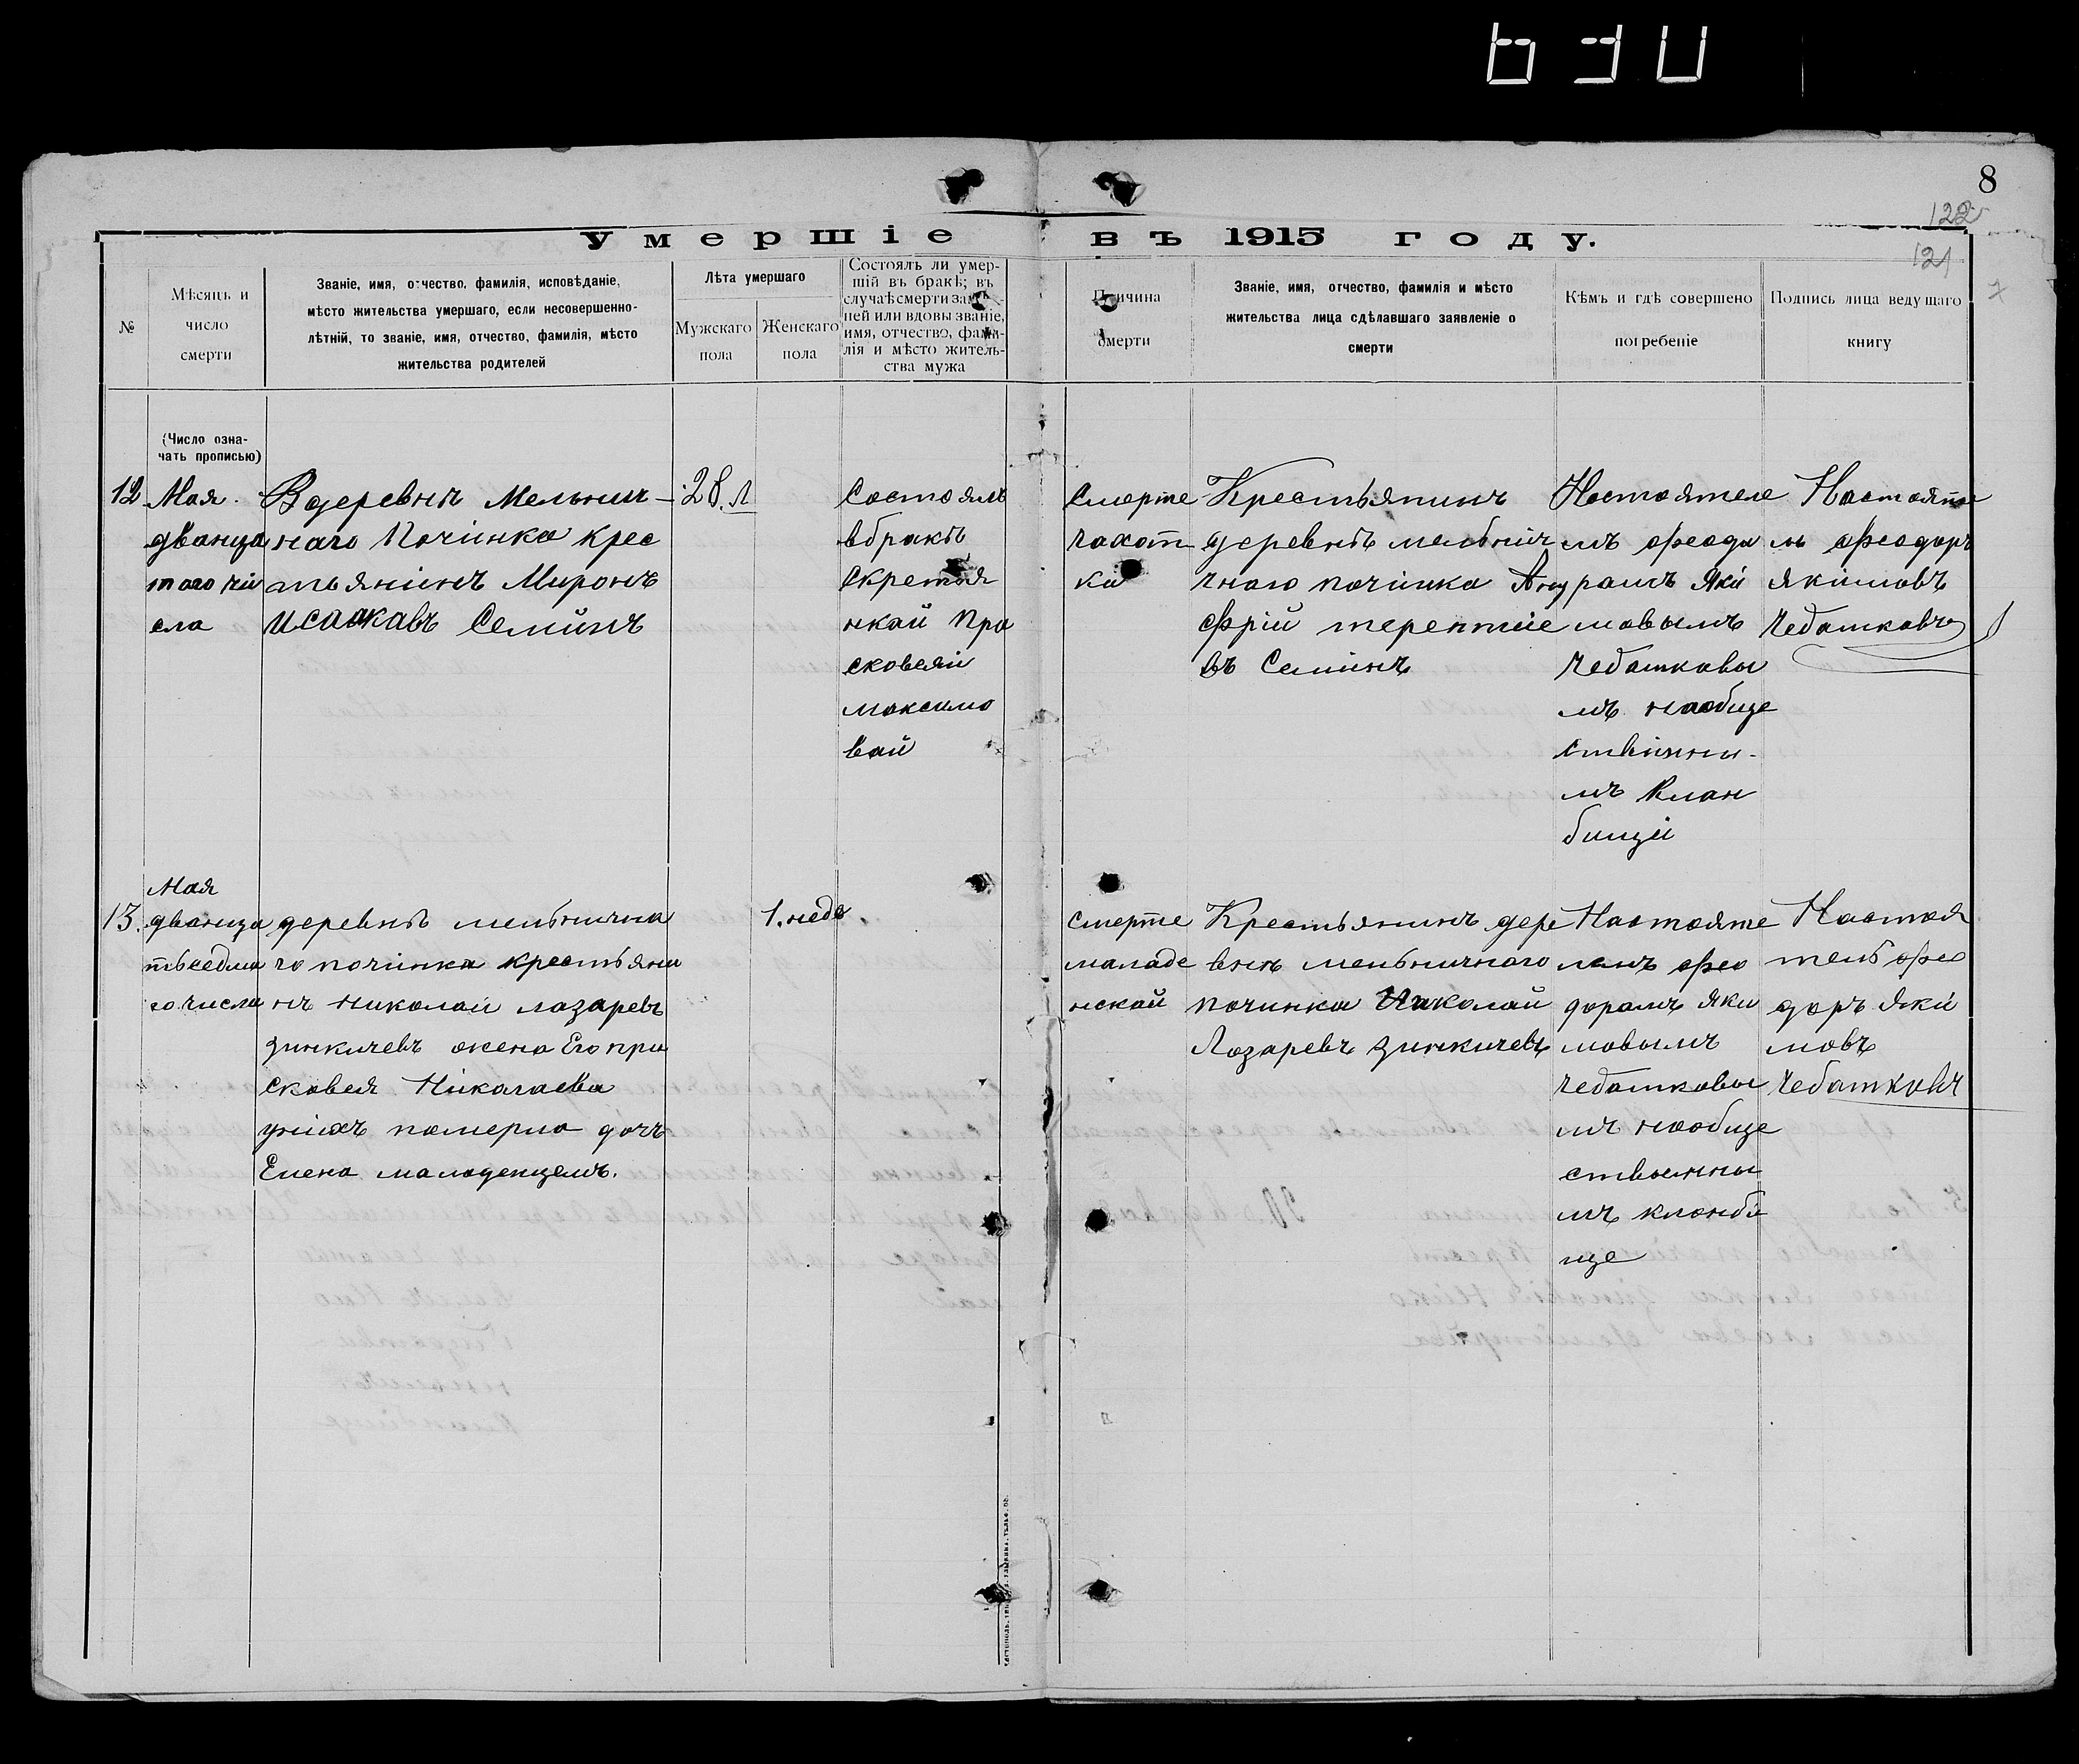 8
122
121
Умершіе въ 1915 году.
№
Мѣсяцъ и
число
смерти
Званіе, имя, отчество, фамилія, исповѣданіе,
мѣсто жительства умершаго, если несовершенно-
лѣтній, то званіе, имя, отчество, фамилія, мѣсто
жительства родителей
Лѣта умершаго
Мужскаго
пола
Женскаго
пола
Состоялъ ли умер-
шій въ бракѣ; въ
случаѣ смерти замуж-
ней или вдовы званіе,
имя, отчество, фами-
лія и мѣсто житель-
ства мужа
Причина
смерти
Званіе, имя, отчество, фамилія и мѣсто
жительства лица сдѣлавшаго заявленіе о
смерти
Кѣмъ и гдѣ совершено
погребеніе
Подпись лица ведущаго
книгу
(Число озна-
чать прописью)
12
Мая
дванца
таго чи
сла
Вдеревнѣ Мельнич-
наго Починка крес
тьянинъ Миронъ
Исаакавъ Семинъ
28.л
Состоялъ
вбракѣ
Скретья
нкай Пра
сковеяй
максимо
вай
Смерте
чахот
ка
Крестьянинъ
деревнѣ мельнич
чнаго починка Ану
фрій терентіе
въ Семинъ
Настоятеле
мъ феода
рамъ Яки
мовымъ
Чебашковы
мъ наобще
ственны-
мъ Клан
бищи
Настояте
ль Феодоръ
Якимовъ
Чебашковъ
13.
Мая
дванца
тьседма
го числа
деревнѣ мельнична
го починка крестьяни
нъ николай лазаревъ
зинкичевъ жена Его пра
сковея Николаева
унихъ померла дочъ
Елена маладенцемъ.
1. неде
смерте
маладе
нской
Крестьянинъ дере
внѣ мельничнаго
починка Николай
Лазаревъ зинкичевъ
Настояте
лемъ фео
дорамъ Яки
мовымъ
чебашковы
мъ наобще
ственны
мъ кланби
ще
Настоя
тель фео
доръ Яки
мовъ
Чебашковъ